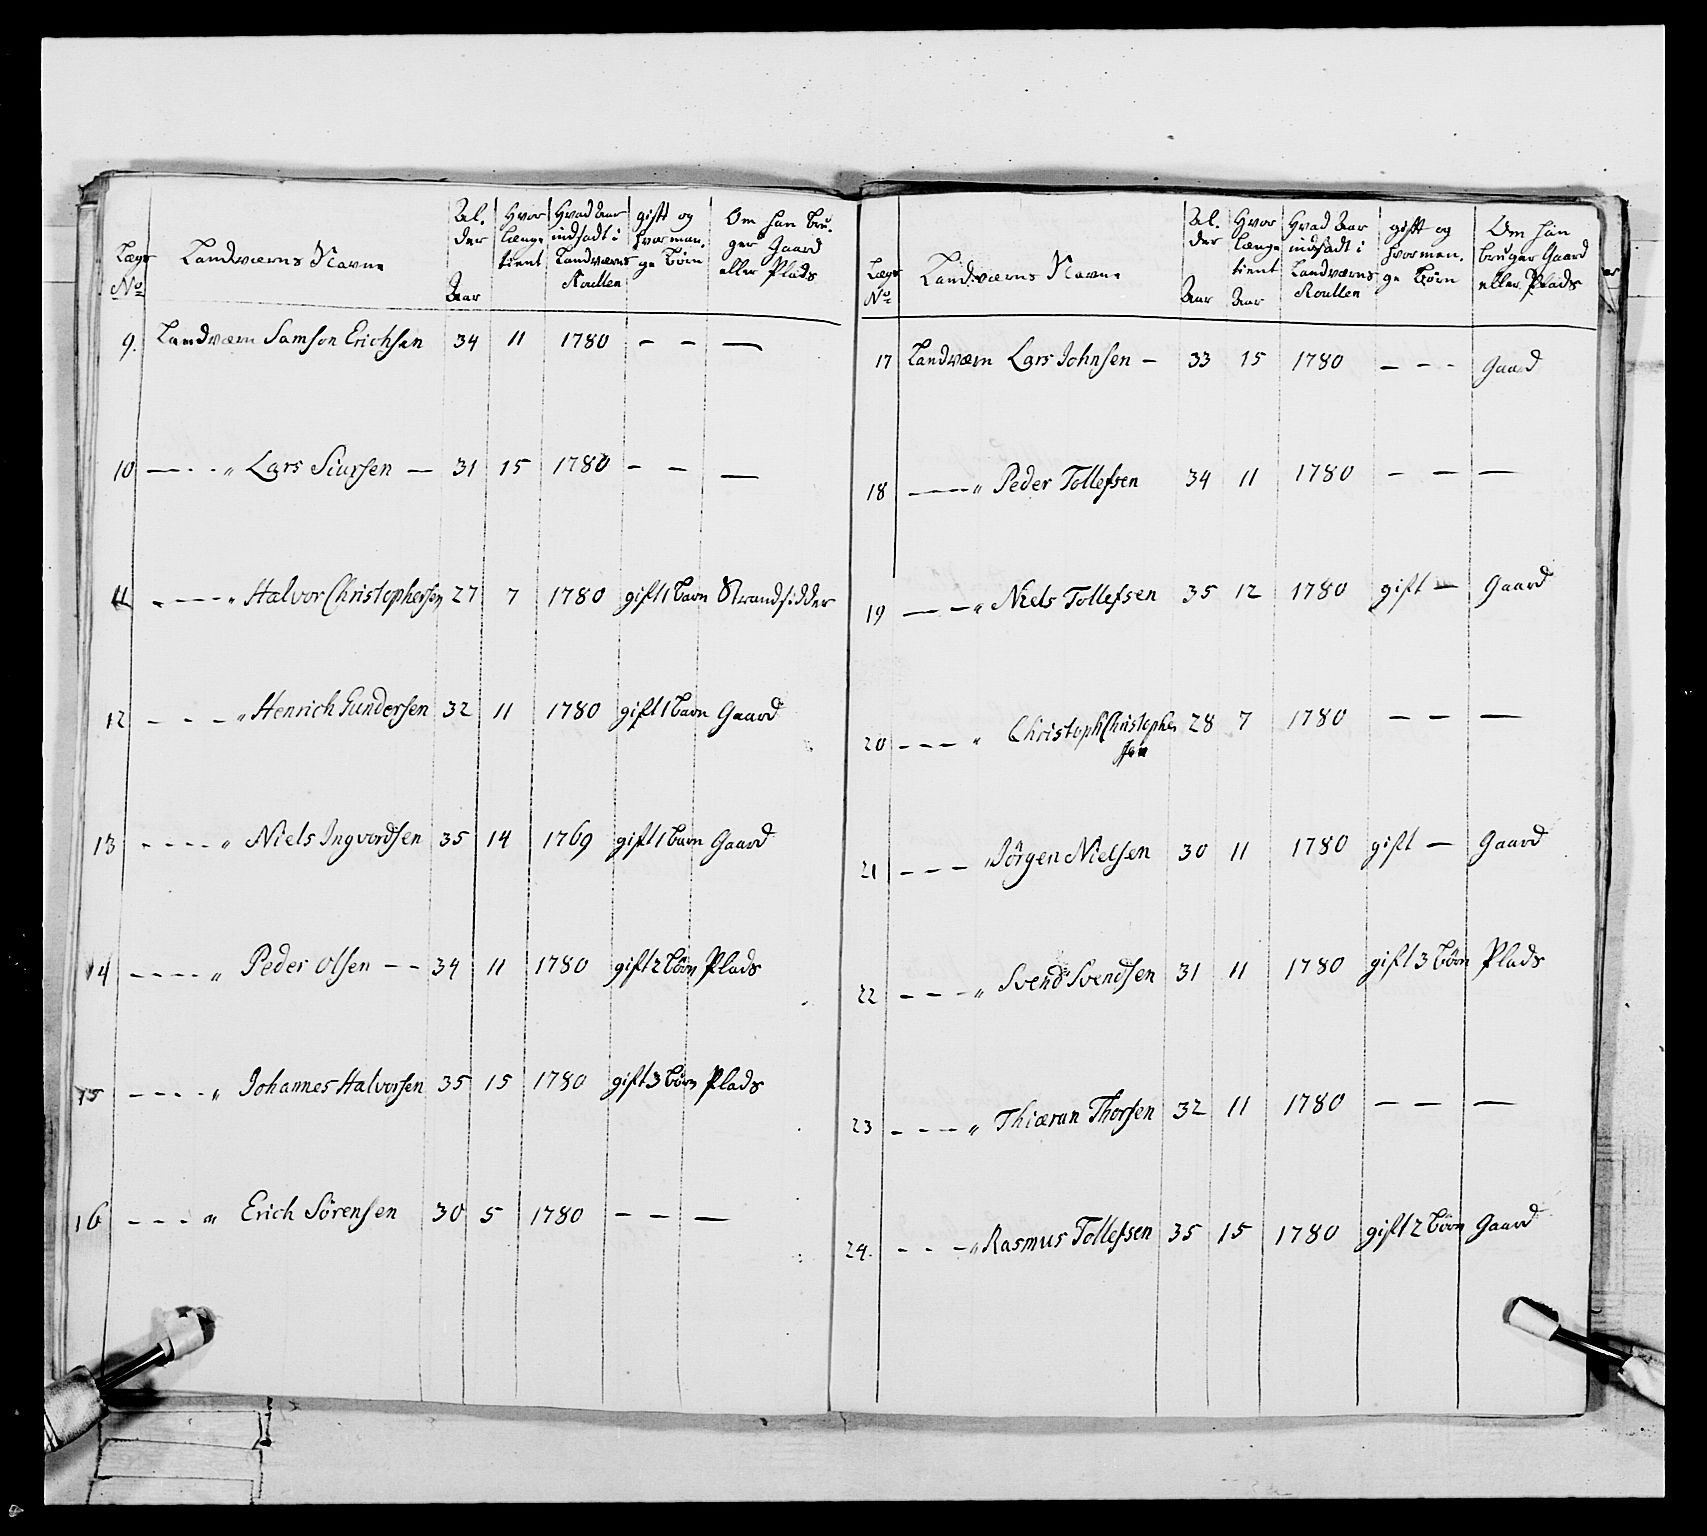 Lægs No | Landværns Navne | Al-der Aar | Hvor længe tient | Hvad Aar indsadt i Landværns Roullen | gift og hvor man-ge Børn | Om han bru-ger Gaard eller Plads
9. Landværn Samson Erichsen 34 11 1780 — — —
10 — - - „ Lars Siursen — 31 15 1780 — — —
11 - — — „ Halvor Christophersen 27 7 1780 gift 1 barn Strandsidder
12 - - - „ Henrich Gundersen 32 11 1780 gift 1 barn Gaard
13 - - - - „ Niels Ingvordsen 35 14 1769 gift 1 barn Gaard
14 - - - - „ Peder Olsen - - 34 11 1780 gift 2 børn Plads
15 - - - - „ Johannes Halvorsen 35 15 1780 gift 3 børn Plads
16 - - - „ Erich Sörensen 30 5 1780 — — —
Lægs No | Landværns Navne | Al-der Aar | Hvor længe tient Aar | Hvad Aar indsadt i Landværns Roullen | gift og hvor man-ge Børn | Om han bruger Gaard eller Plads
17 Landværn Lars Johnsen — 33 15 1780 - - - Gaard
18 — — — „ Peder Tollefsen 34 11 1780 — — —
19 — — „ Niels Tollefsen 35 12 1780 gift — Gaard
20 - - - „ Christoph Christophersen 28 7 1780 — — —
21 - - - „ Jörgen Nielsen 30 11 1780 gift — Gaard
22 - - - „ Svend Svendsen 31 11 1780 gift 3 børn Plads
23 - - - „ Thiæran Thorsen 32 11 1780 — — —
24. - - - „ Rasmus Tollefsen 35 15 1780 gift 2 børn Gaard